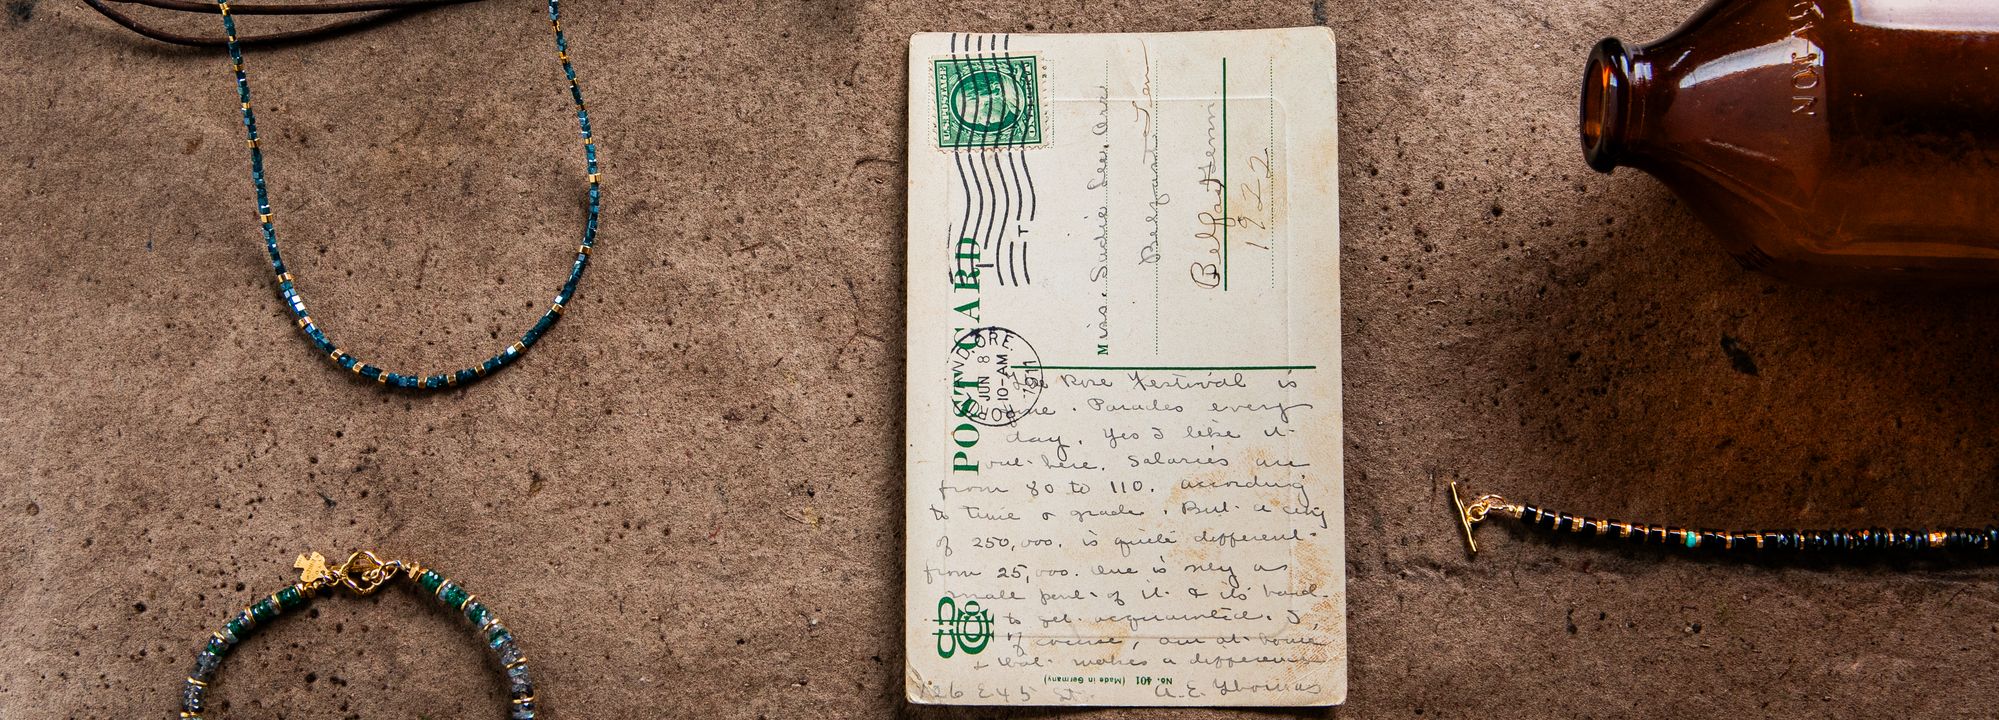 U.S. POSTAGE
POST CARD
PORTLAND, ORE.
JUN 8
10-AM
1911
T
Miss. Sudie Lee Orr
Belfast Ten
Belfast Tenn.
1922
The Rose Festival is
fine. Parades every
day. Yes I like it
out here. Salaries are
from 80 to 110. according
to time & grade. But a city
of 250,000. is quite different
from 25,000. One is only a
small part of it & its hard
to get acquainted. I
of course, am at home
& that makes a difference
A. E. Thomas
E 45 St.
No. 401 (Made in Germany)
NOL